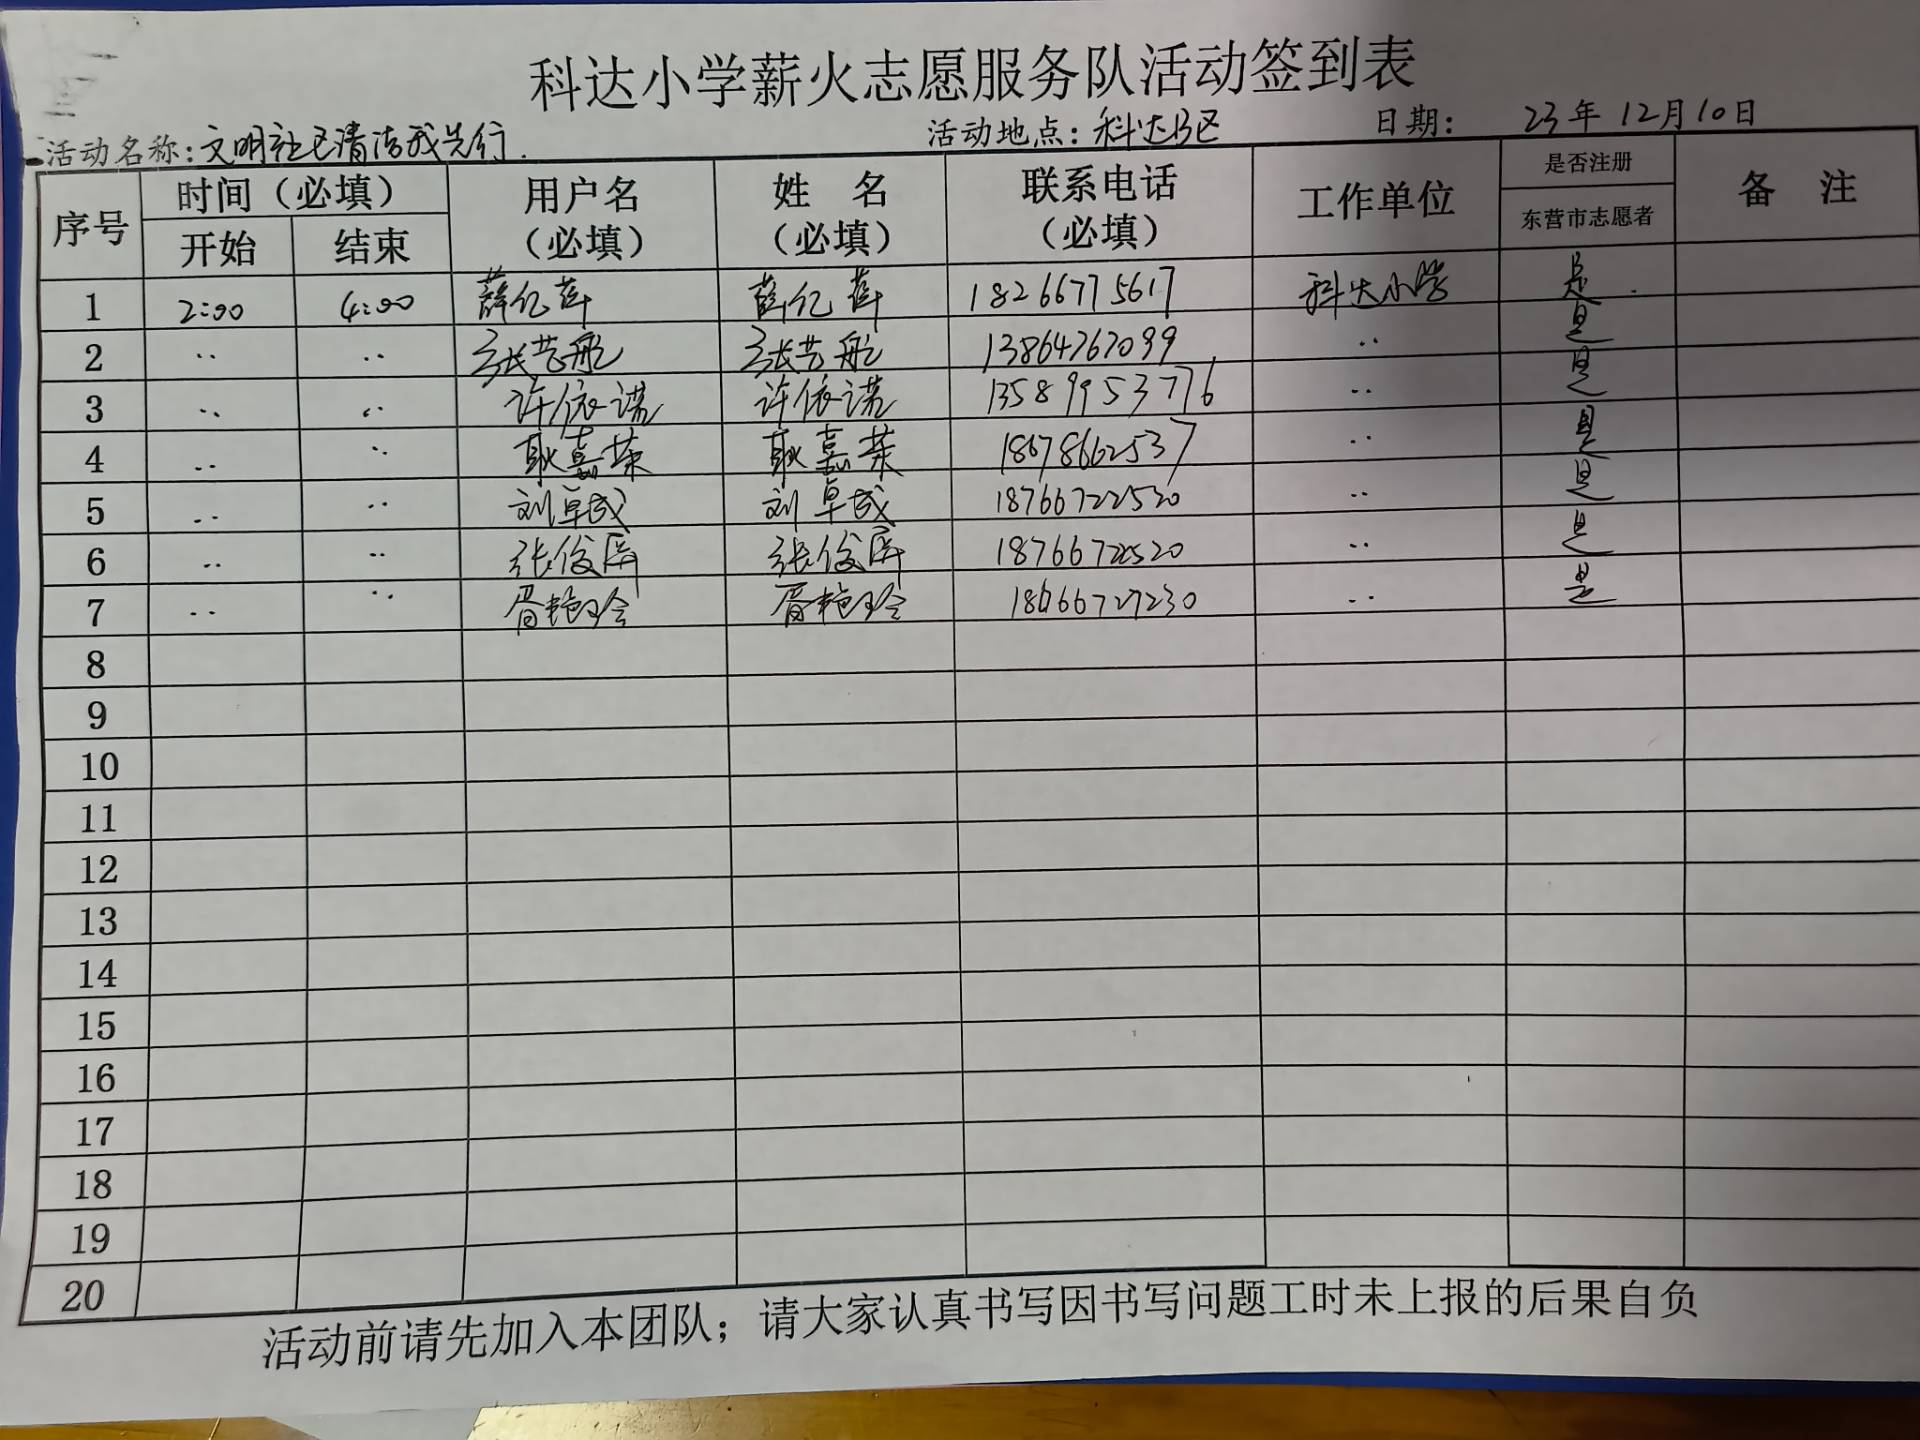 科达小学薪火志愿服务队活动签到表
活动名称：文明社区清洁我先行. 活动地点：科达B区 日期： 23年12月10日
序号 时间（必填） 用户名（必填） 姓 名（必填） 联系电话（必填） 工作单位 是否注册东营市志愿者 备 注
开始 结束
1 2:00 4:00 薛亿莲 薛亿莲 18266775617 科大小学 是.
2 〃 〃 张艺航 张艺航 13864767099 〃 是
3 〃 〃 许依诺 许依诺 13589953776 〃 是
4 〃 〃 耿嘉荣 耿嘉荣 18678662537 〃 是
5 〃 〃 刘卓成 刘卓成 18766722520 〃 是
6 〃 〃 张俊屏 张俊屏 18766722520 〃 是
7 〃 〃 胥艳玲 胥艳玲 18666727230 〃 是
8
9
10
11
12
13
14
15
16
17
18
19
20
活动前请先加入本团队；请大家认真书写因书写问题工时未上报的后果自负